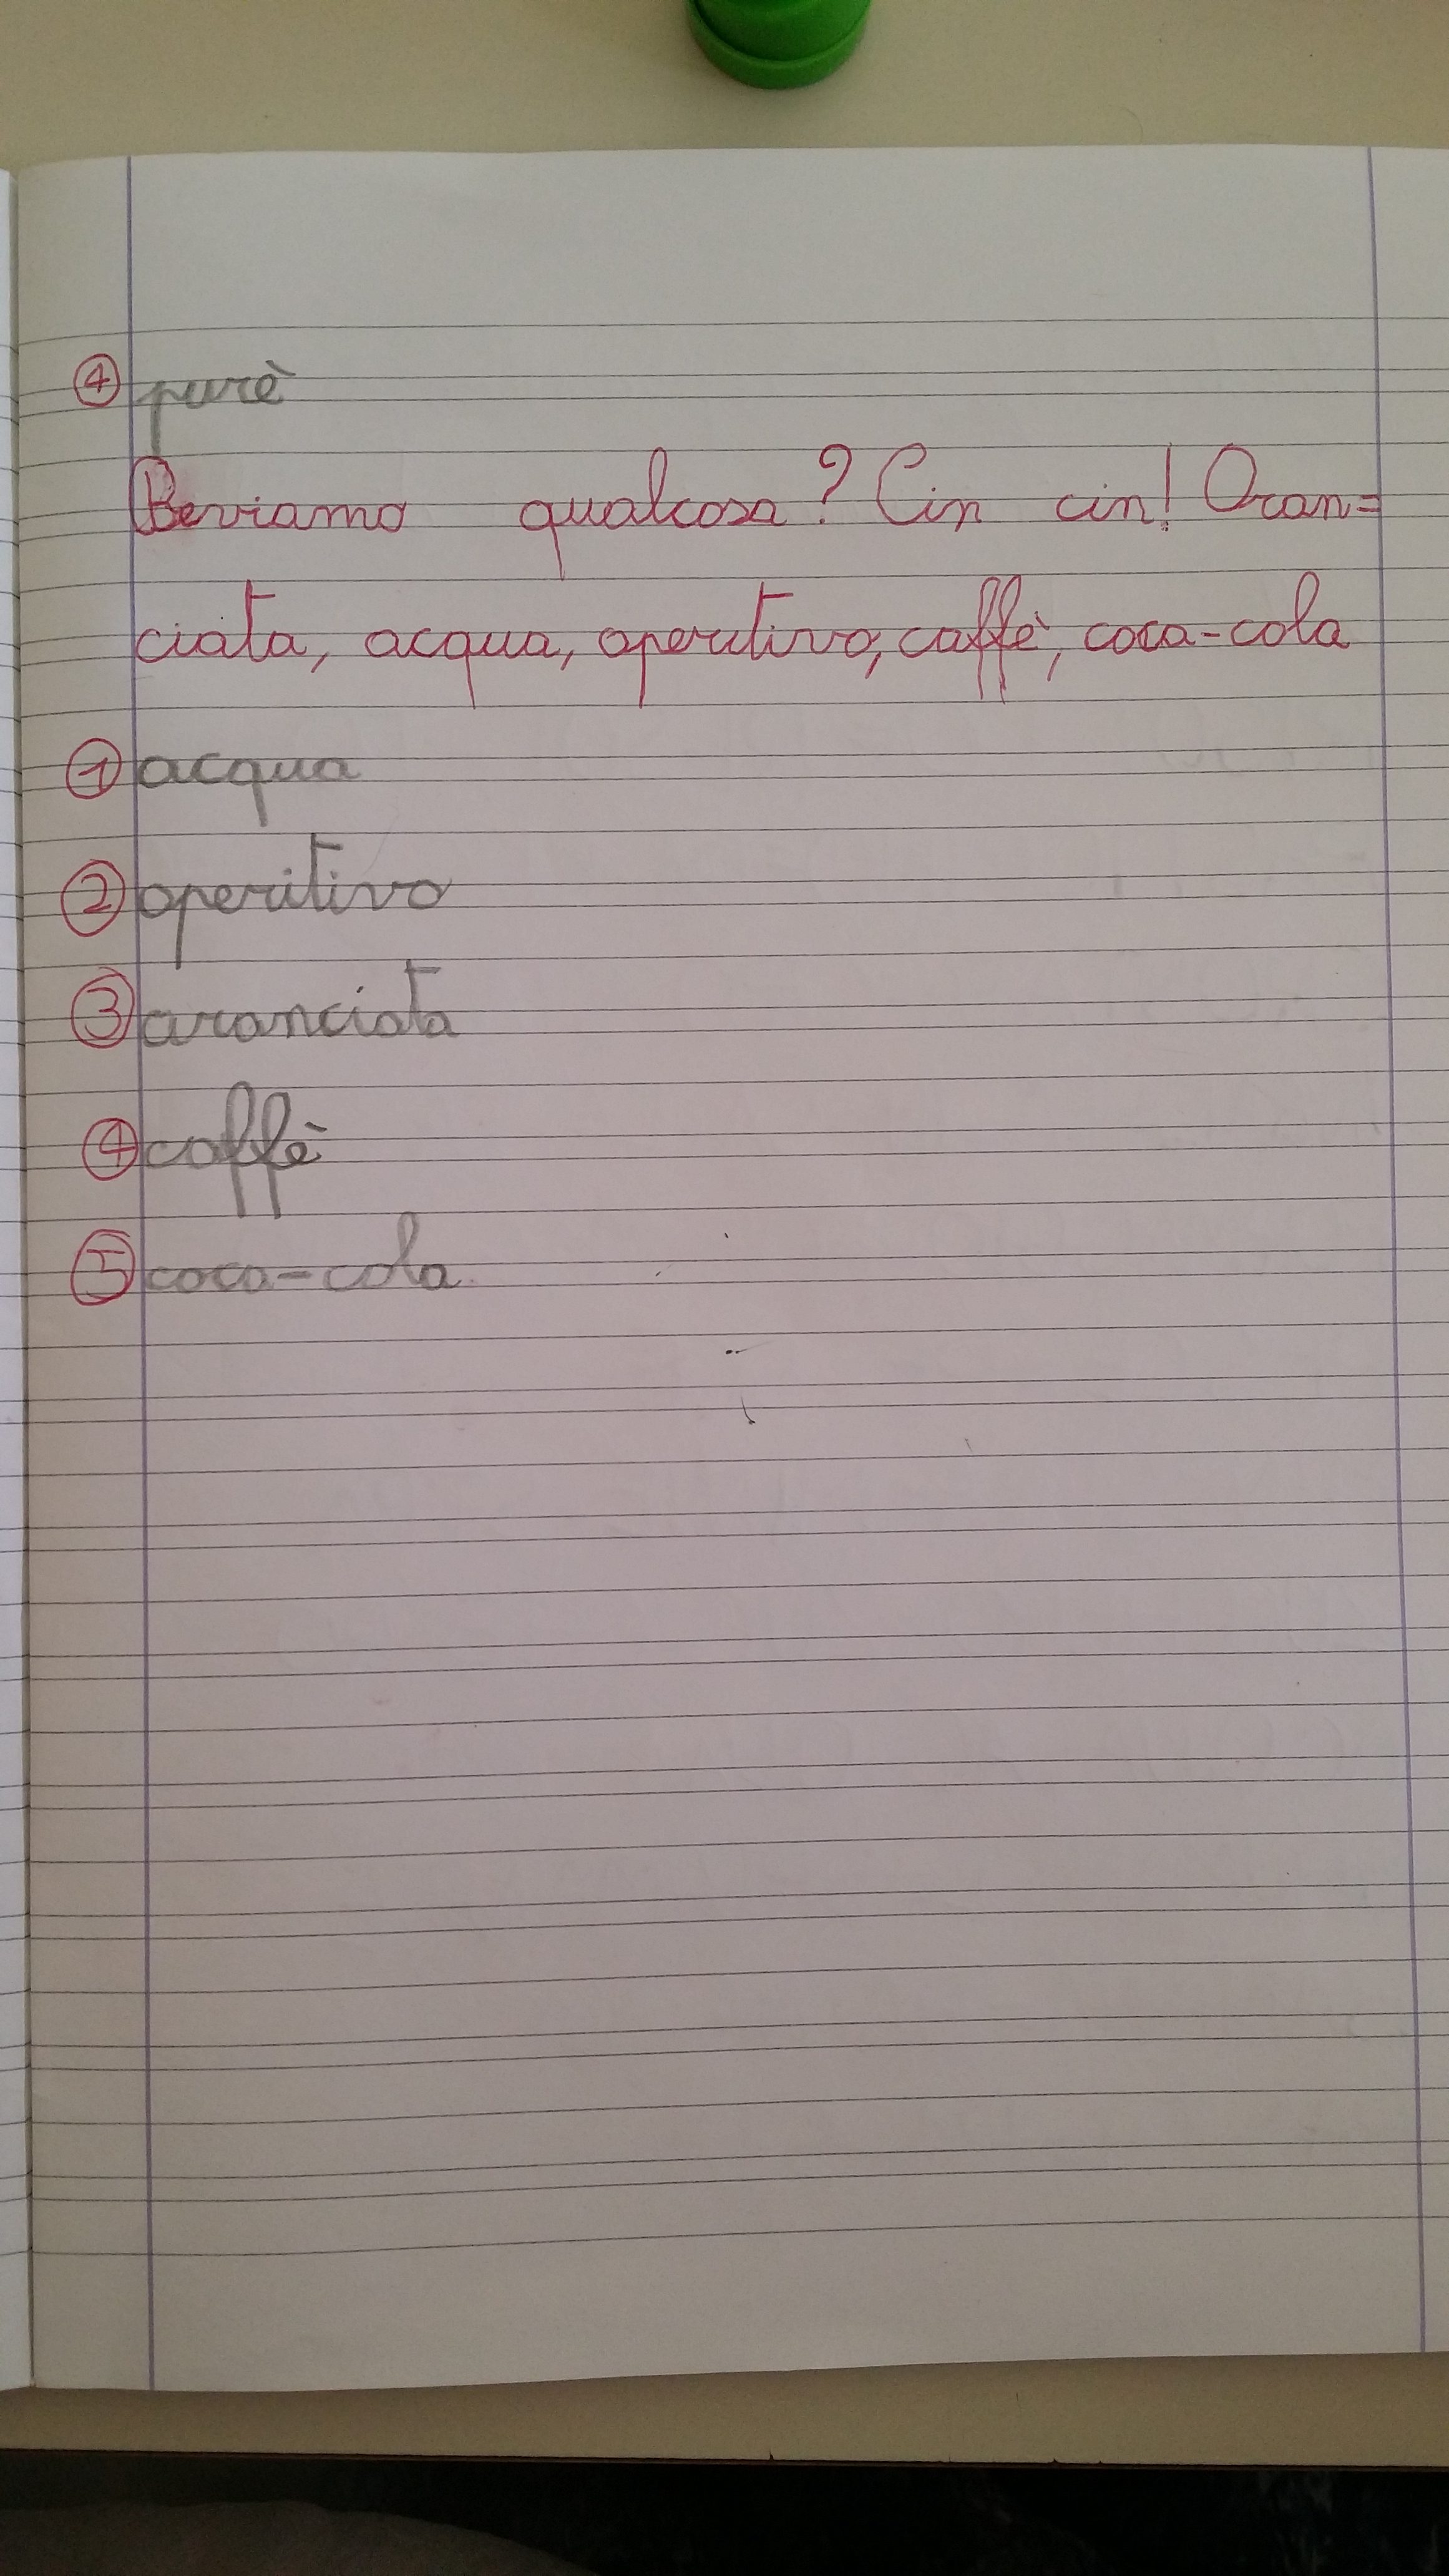 ④ purè
Beviamo qualcosa? Cin cin! Aran=
ciata, acqua, aperitivo, caffè, coca-cola
① acqua
② aperitivo
③ aranciata
④ caffè
⑤ coca-cola